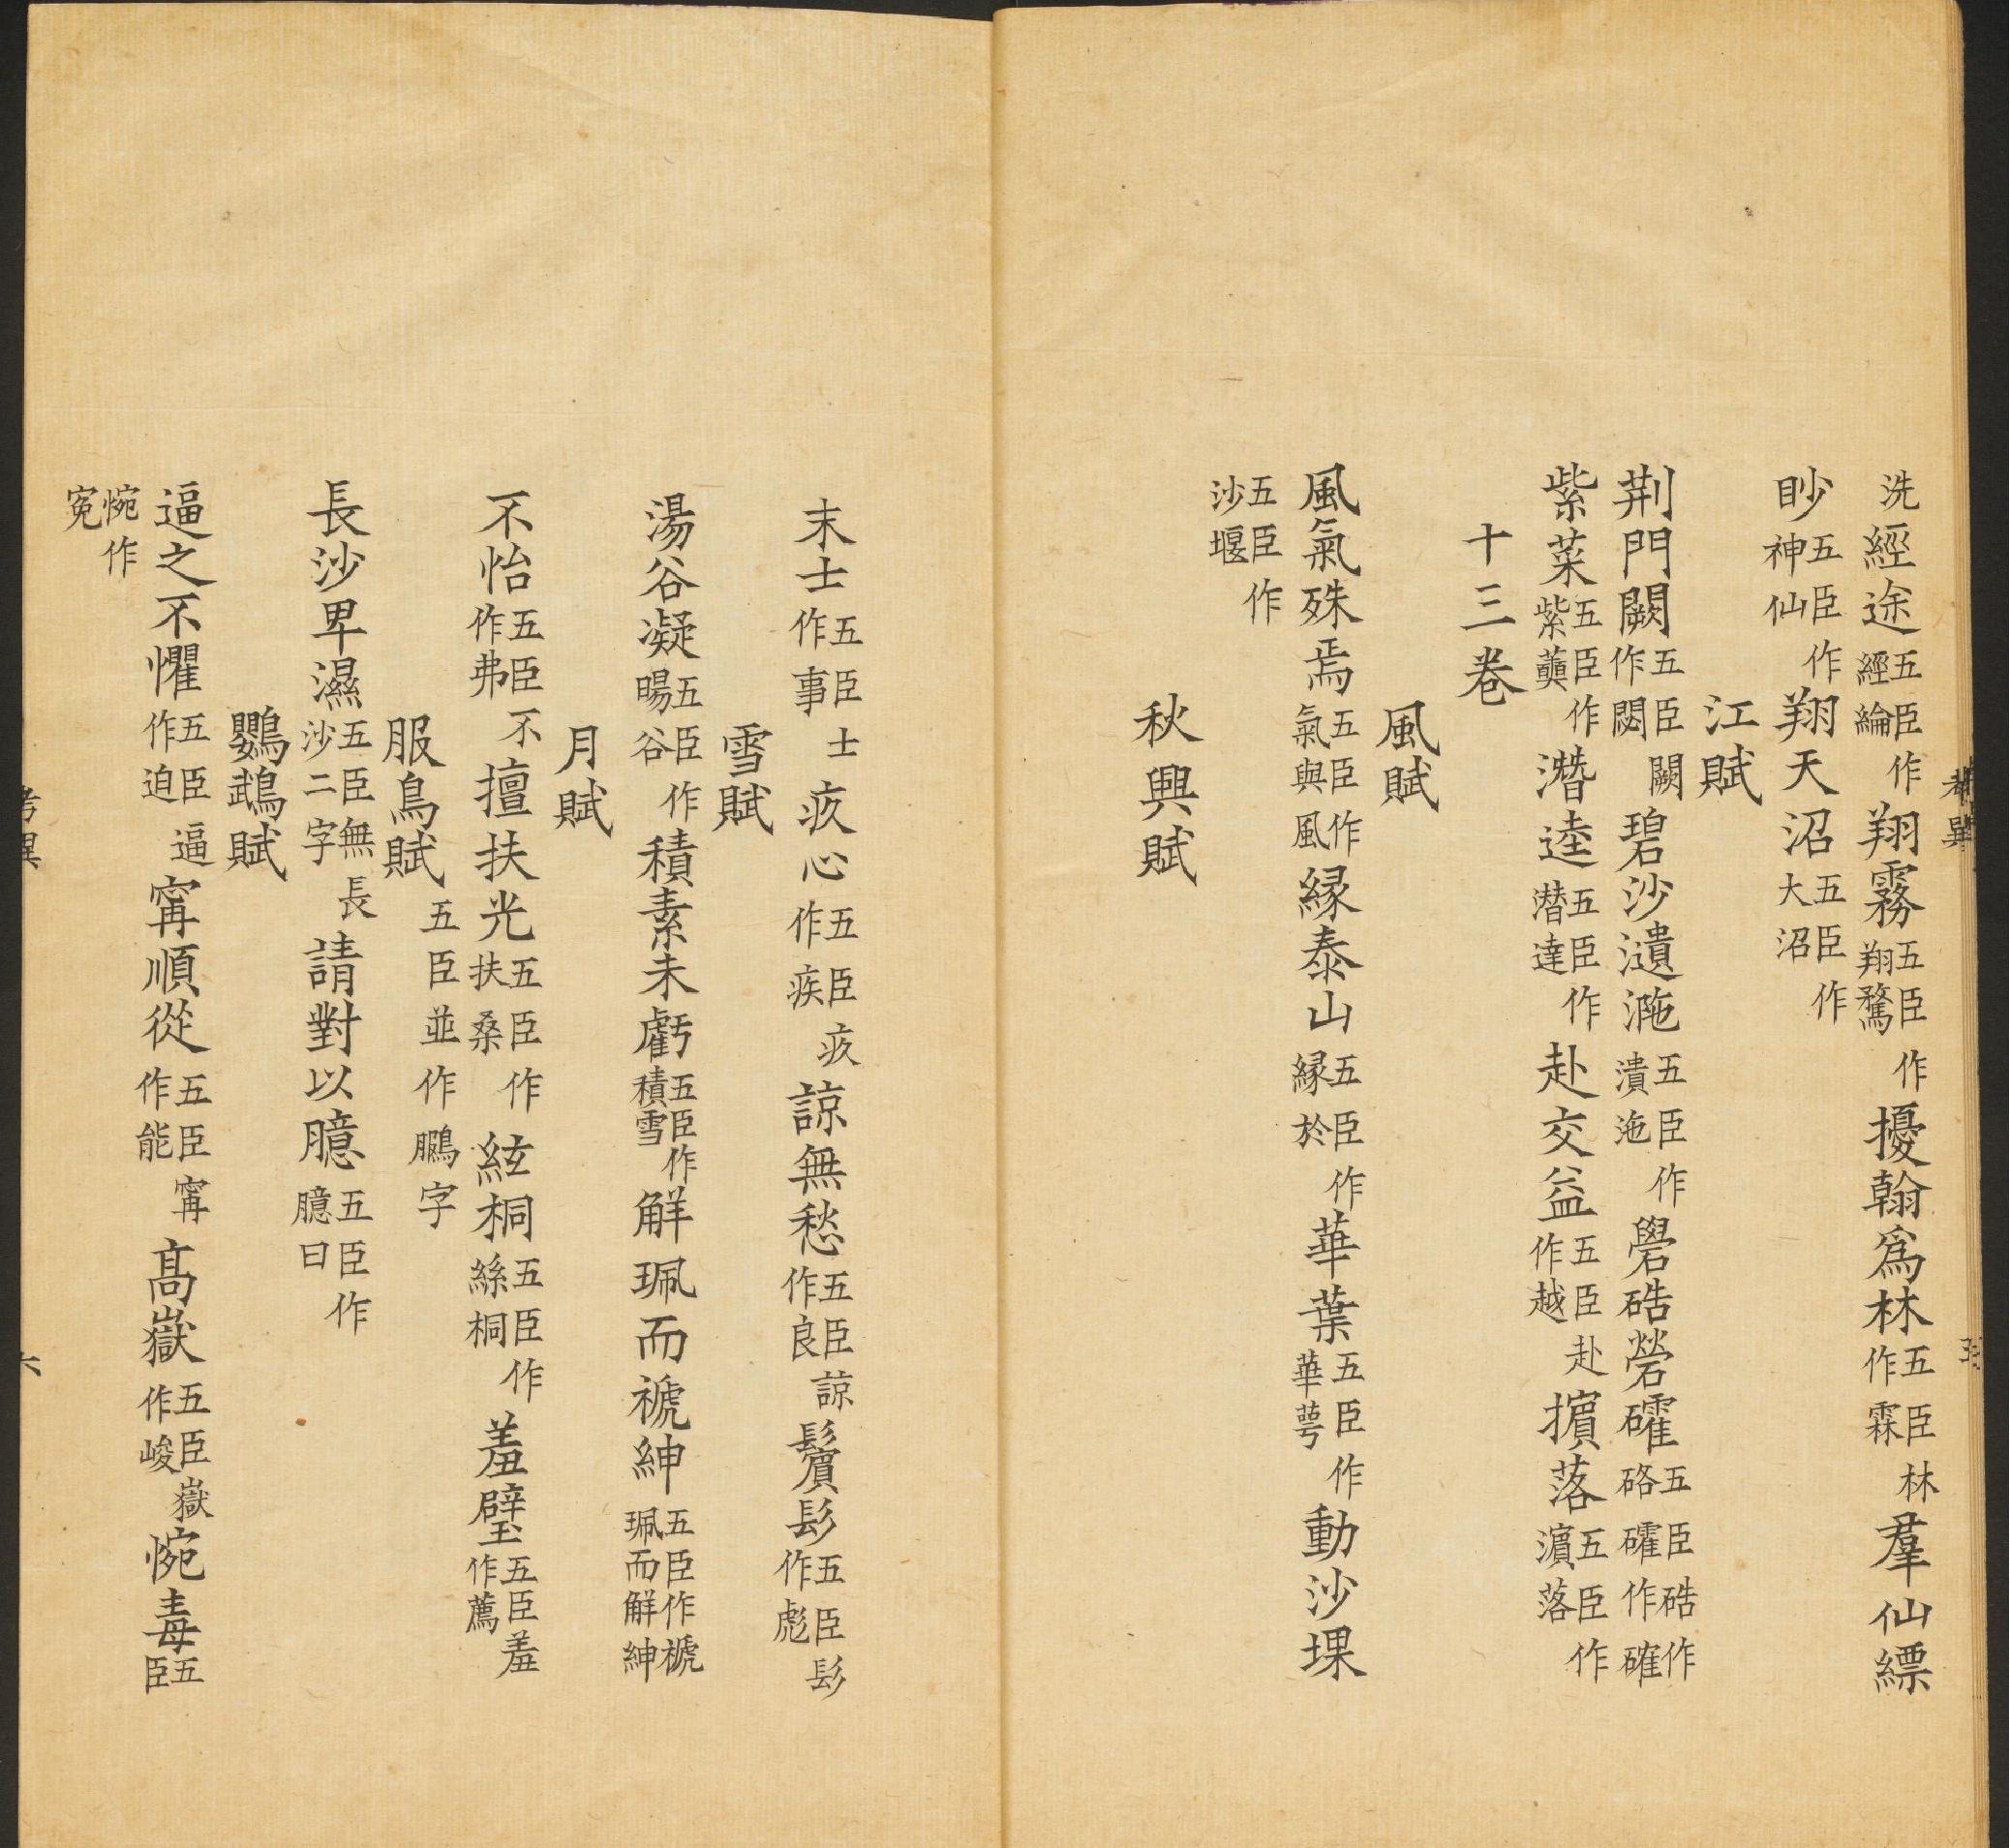 洗經途五臣作經綸翔霧五臣作翔騖擾翰爲林五臣林作霖羣仙縹
眇五臣作神仙翔天沼五臣作大沼
江賦
荆門闕五臣闕作碧沙瀢㴰五臣作潰沲礐硞礭五臣硞作硌礭作確
紫菜五臣作紫潛逵五臣作潜達赴交益五臣赴作越擯落五臣作濵落
十三卷
風賦
風氣殊焉五臣作氣與風縁泰山五臣作縁於華葉五臣作華萼動沙堁
五臣作沙堰
秋興賦
考異 五
末士五臣士作事疚心五臣疚作疾諒無愁五臣諒作良鬢髟五臣髟作彪
雪賦
湯谷凝五臣作暘谷積素未虧五臣作積雪觧珮而禠紳五臣作禠珮而觧紳
月賦
不怡五臣不作弗擅扶光五臣作扶桑絃桐五臣作絲桐羞璧五臣羞作薦
服鳥賦五臣並作鵩字
長沙卑濕五臣無長沙二字請對以臆五臣作臆曰
鸚鵡賦
逼之不懼五臣逼作迫甯順從五臣甯作能髙嶽五臣嶽作峻惋毒五臣
惋作寃
考異 六